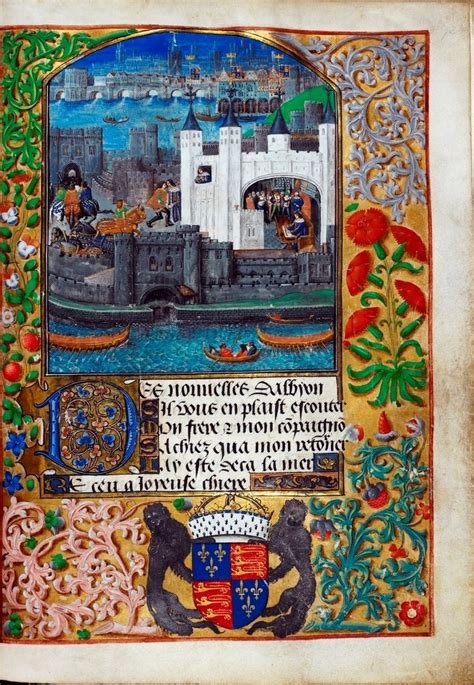 Des nouuelles dalbyon
Sil vous en plaist escouter
Mon frere & mon compaignō
Sachiez qua mon retorner
Jay este deca la mer
Receu a joyeuse chiere